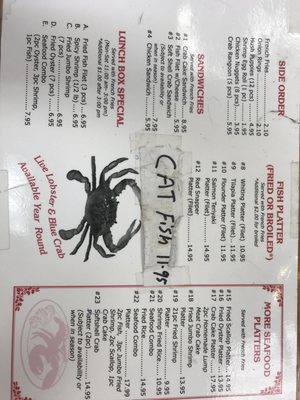 SIDE ORDER
French Fries 2.10
Onion Rings 2.10
Hush Puppies (12 pcs)
Shrimp Egg Roll (1 pc)
Chicken Nuggets (8 pcs)
Crab Rangoons (5pc) 5.95
SANDWICHES
Served with French Fries
#1 Crab Cake Sandwich 8.95
#2 Fish Filet w/Cheese 5.95
#3 Soft Shell Crab Sandwich
(Subject to availability or
when in season)
#4 Chicken Sandwich 5.95
LUNCH BOX SPECIAL
Served with French Fries
(Mon-Sat 11:00 am - 2:00 pm)
*Add $1.00 after 2:00 pm
A. Fried Fish Filet (3 pcs) 6.95
B. Spicy Shrimp (1/2 lb) 6.95
C. Fried Jumbo Shrimp
(7 pcs) 6.95
D. Fried Oyster (7 pcs) 7.95
E. Seafood Combo
(2pc Oyster, 3pc Shrimp,
1pc Fish) 7.95
FISH PLATTER
(FRIED OR BROILED*)
Served with French Fries
*Additional $1.00 for Broiled
#8 Whiting Platter (Filet) 10.95
#9 Tilapia Platter (Filet) 11.95
#10 Flounder Platter (Filet) 11.95
#11 Salmon Teriyaki
Platter (Filet) 14.95
#12 Red Snapper
Platter (Filet) 14.95
CAT Fish 11.95
Live Lobster & Blue Crab
Available Year Round
MORE SEAFOOD
PLATTERS
Served with French Fries
#15 Fried Scallop Platter 14.95
#16 Fried Oyster Platter 13.95
#17 Crab Cake Platter
2pc Homemade Lump
Meat Crab Cake
#18 Fried Jumbo Shrimp
Platter
#19 21pc Fried Shrimp
Platter 9.95
#20 Shrimp Fried Rice 10.95
#21 Seafood Combo
Fried Rice 14.95
#22 Seafood Combo
Platter 17.99
2pc Fish, 3pc Jumbo Fried
Shrimp, 3pc Scallop, 1pc
Crab Cake
#23 Softshell Crab
Platter (2pc) 14.95
(Subject to availability or
when in season)